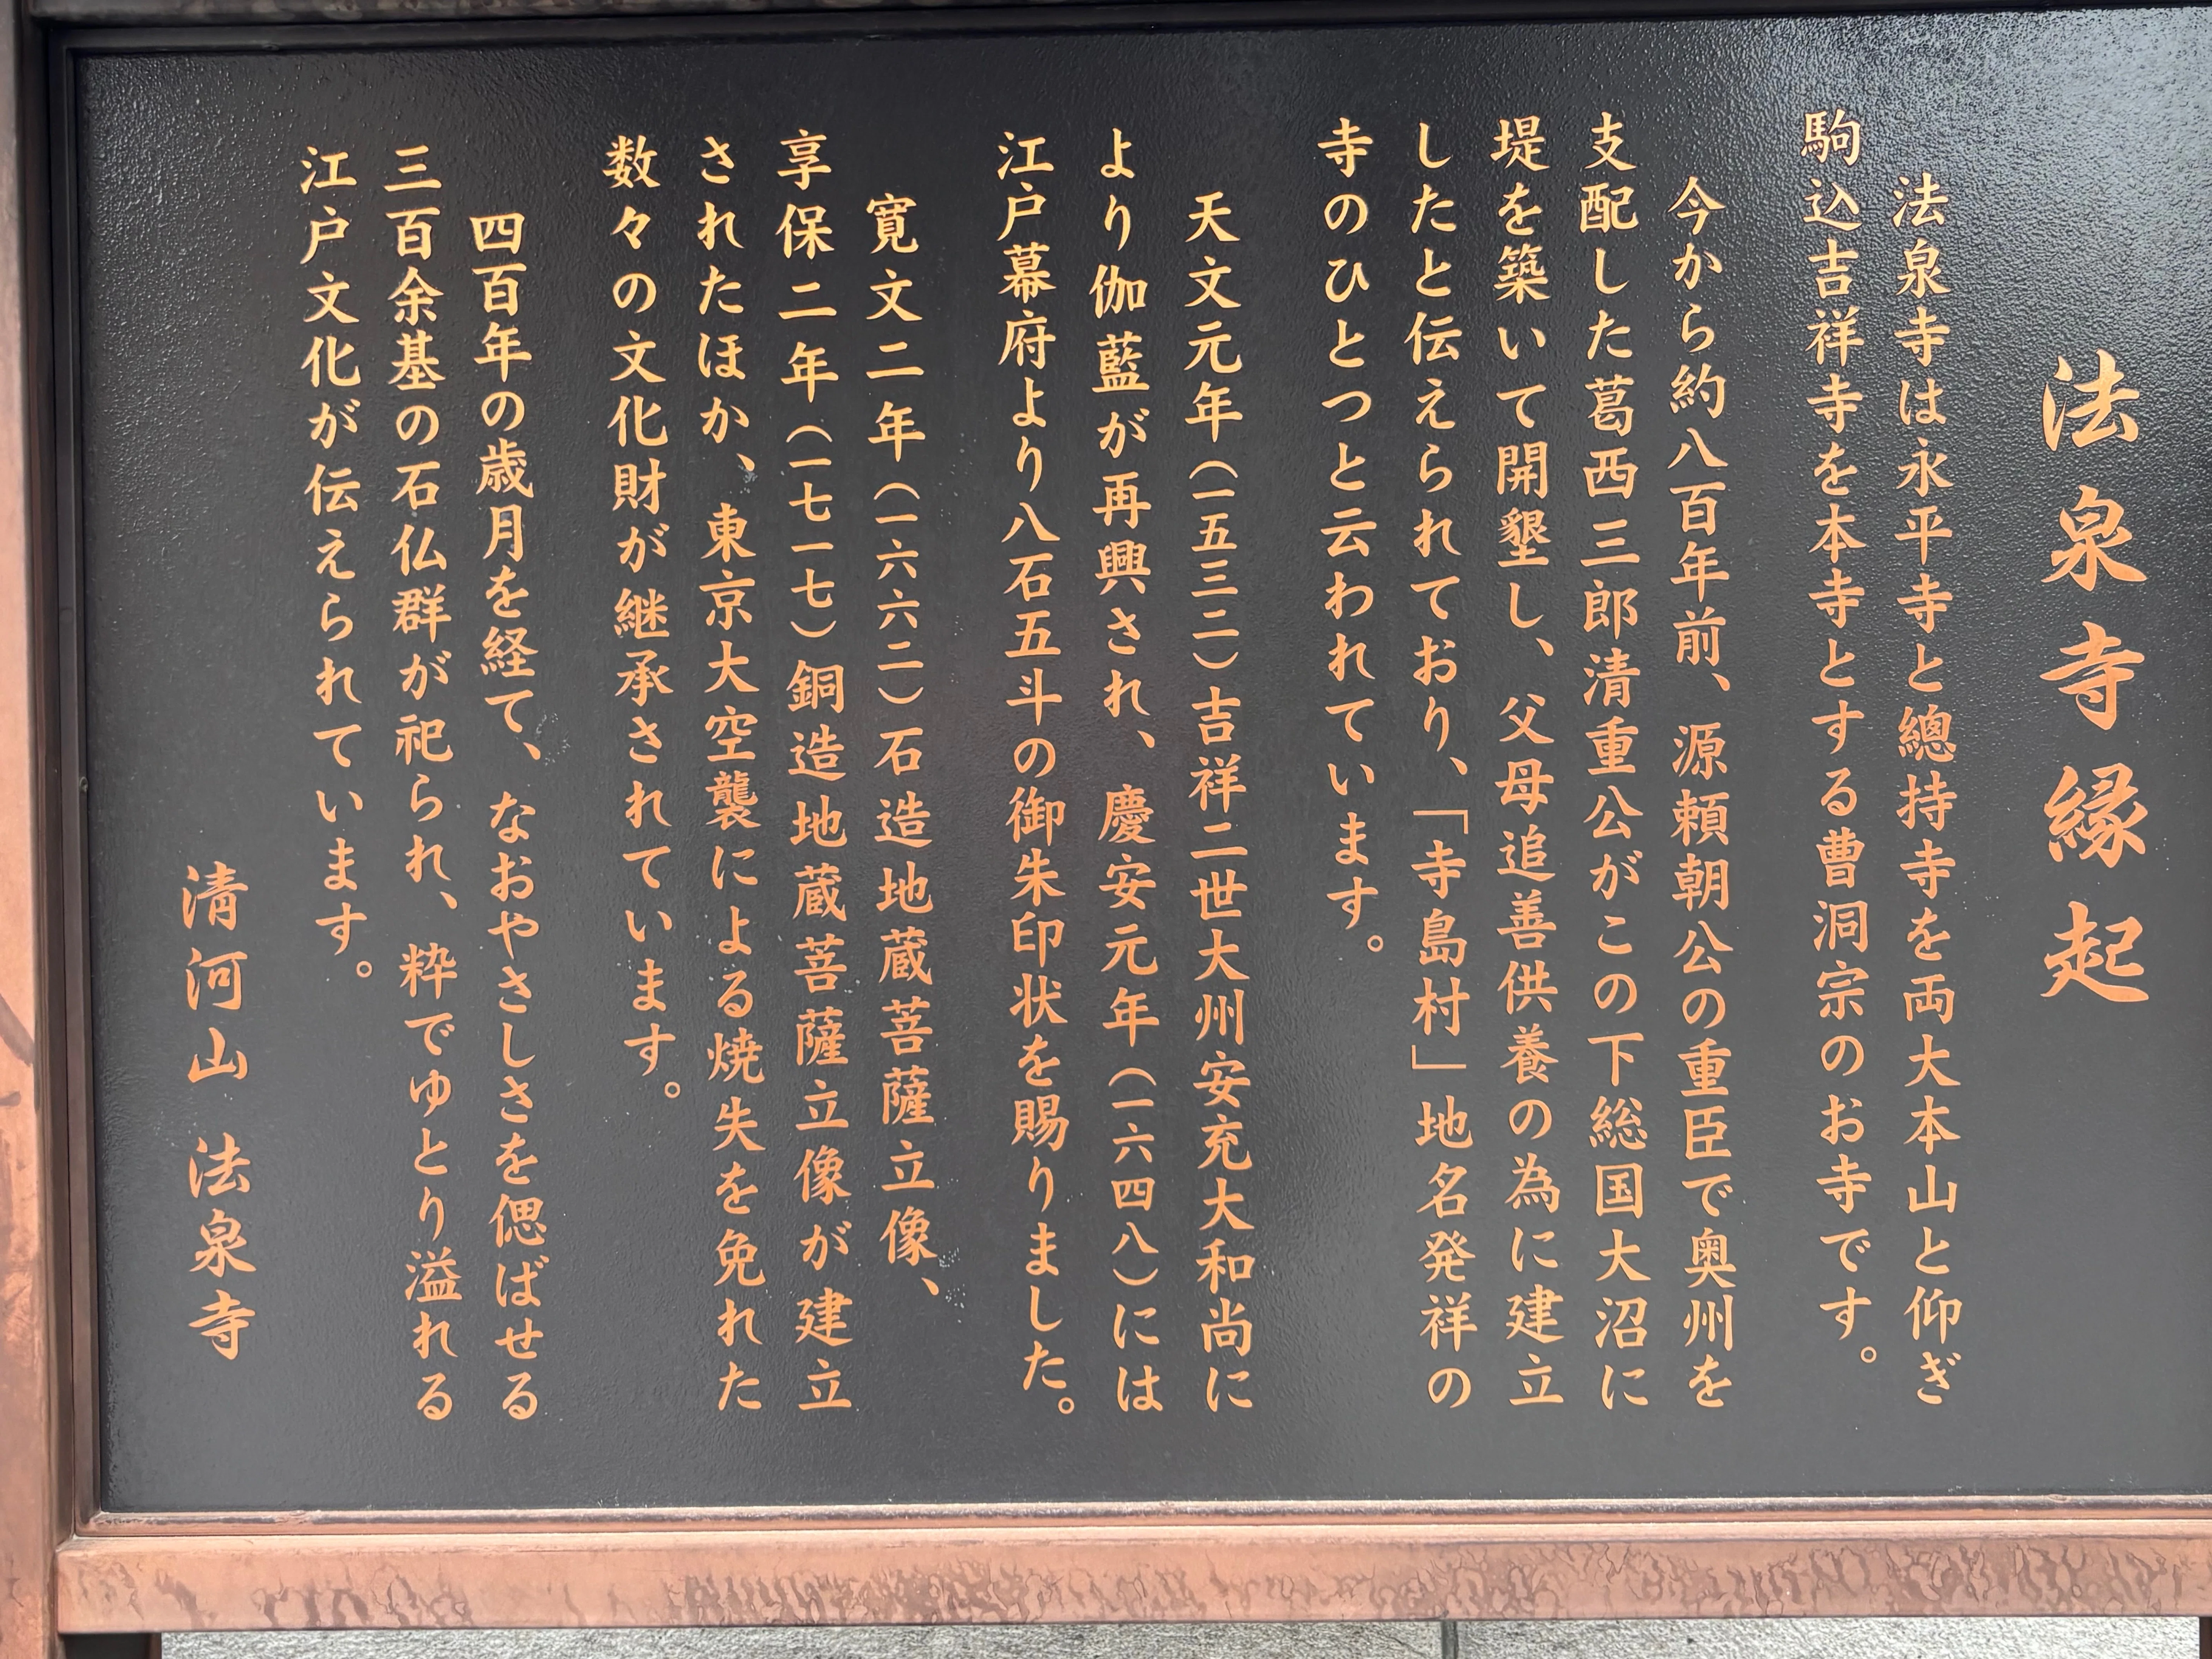 法泉寺縁起
法泉寺は永平寺と總持寺を両大本山と仰ぎ
駒込吉祥寺を本寺とする曹洞宗のお寺です。
今から約八百年前、源頼朝公の重臣で奥州を
支配した葛西三郎清重公がこの下総国大沼に
堤を築いて開墾し、父母追善供養の為に建立
したと伝えられており、「寺島村」地名発祥の
寺のひとつと云われています。
天文元年(一五三二)吉祥二世大州安充大和尚に
より伽藍が再興され、慶安元年(一六四八)には
江戸幕府より八石五斗の御朱印状を賜りました。
寛文二年(一六六二)石造地蔵菩薩立像、
享保二年(一七一七)銅造地蔵菩薩立像が建立
されたほか、東京大空襲による焼失を免れた
数々の文化財が継承されています。
四百年の歳月を経て、なおやさしさを偲ばせる
三百余基の石仏群が祀られ、粋でゆとり溢れる
江戸文化が伝えられています。
清河山 法泉寺